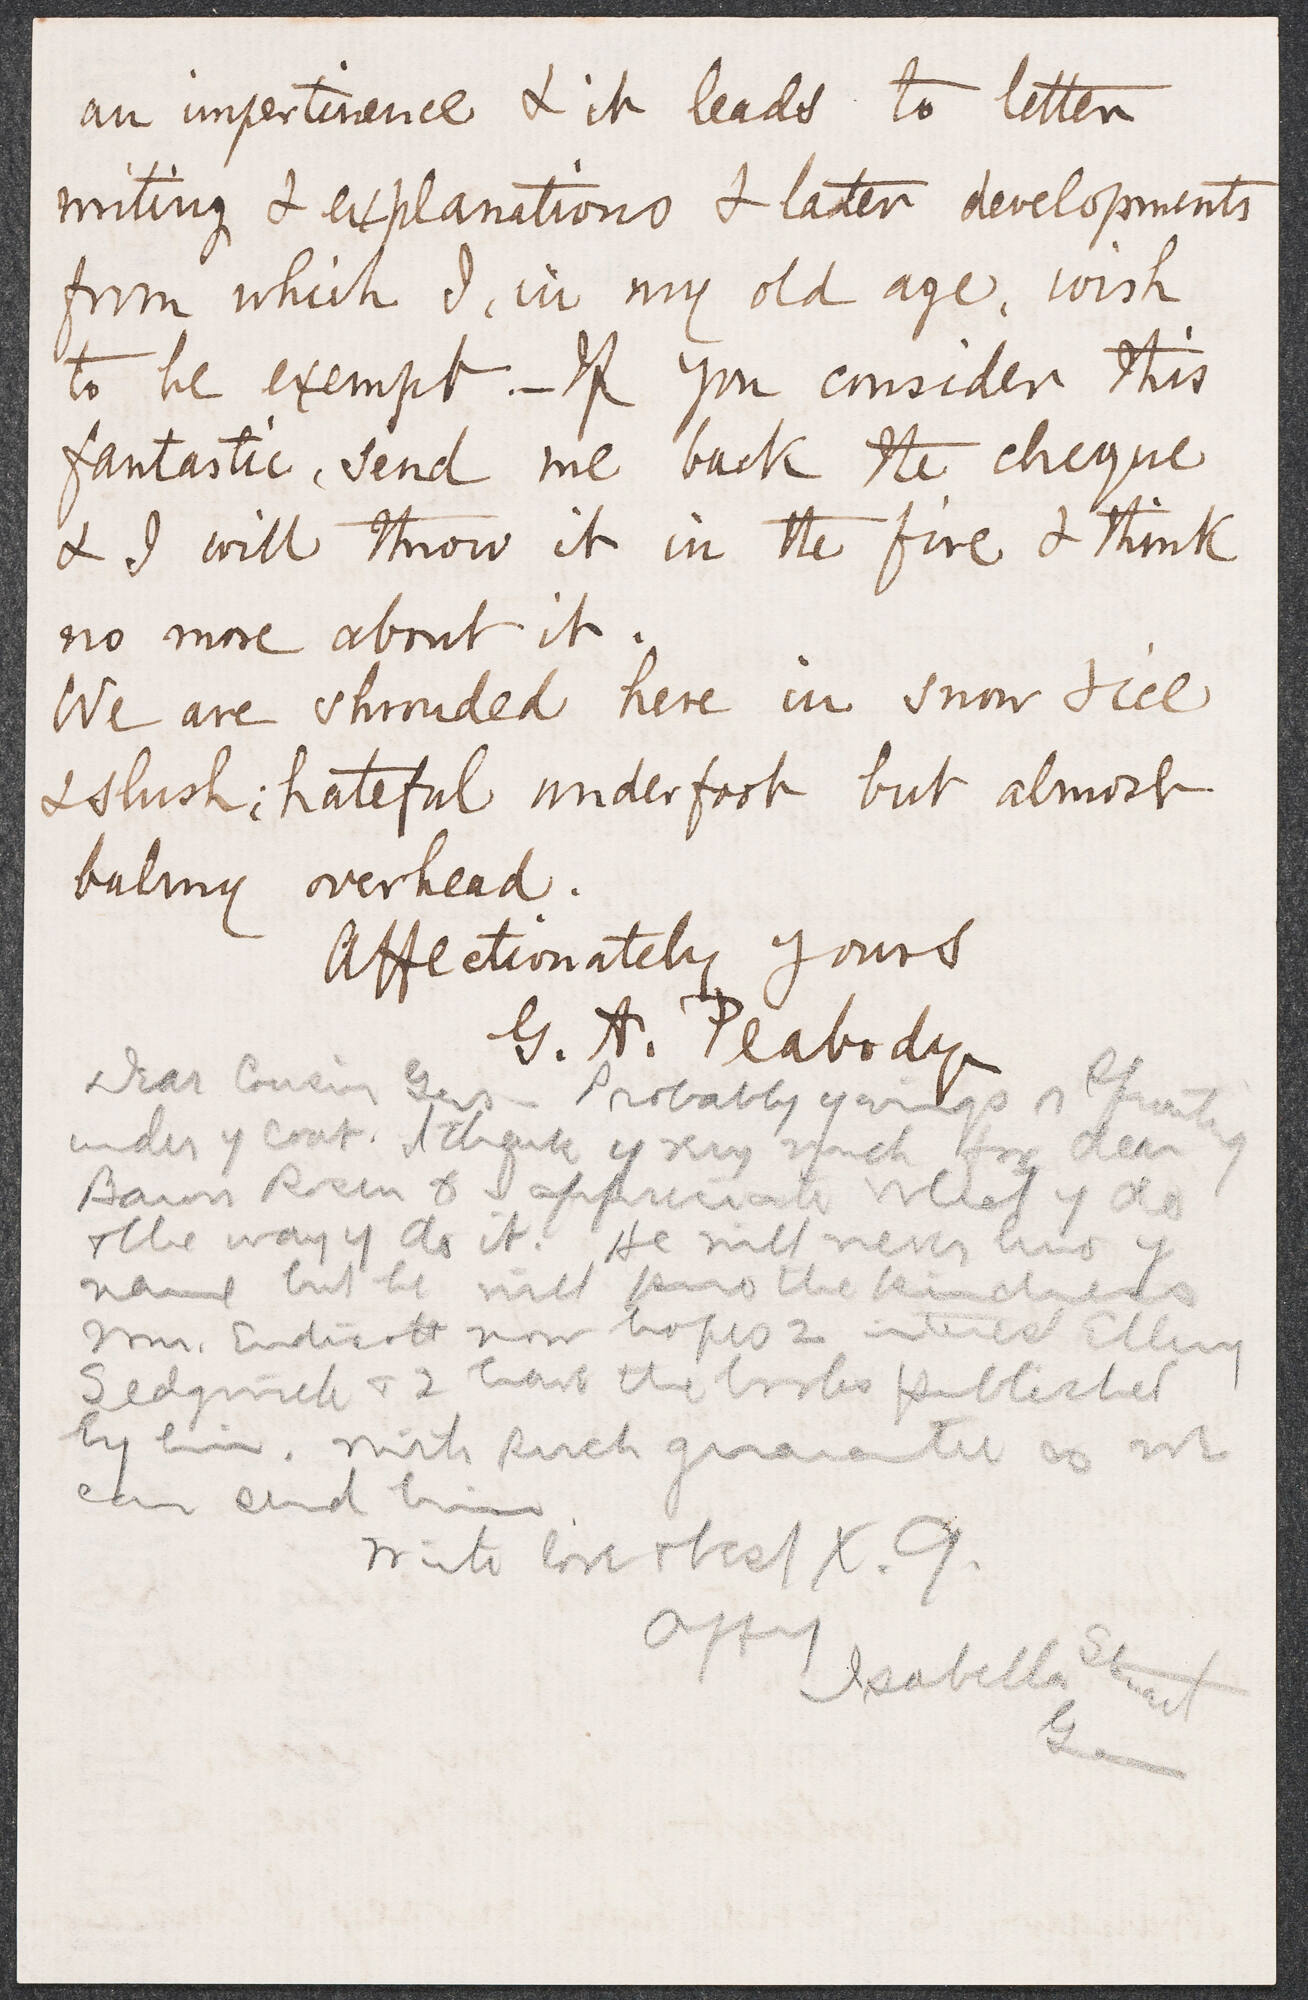 an impertinence & it leads to letter
writing & explanations & later developments
from which I, in my old age, wish
to be exempt. – If you consider this
fantastic, send me back the cheque
& I will throw it in the fire & think
no more about it.
We are shrouded here in snow & ice
& slush; hateful underfoot but almost
balmy overhead.
Affectionately yours
G. A. Peabody
Dear Cousin Gus – Probably y wings r sprouting
under y coat. I thank y very much for dear
Baron Rosen & appreciate what y do
& the way y do it. He will never kno y
name but he will kno the kindness
Wm. Endicott now hopes 2 interest Ellery
Sedgwick & 2 have the books published
by him. with such guarantee as we
can send him
With love & best X. 9.
Affy
Isabella Stuart
G